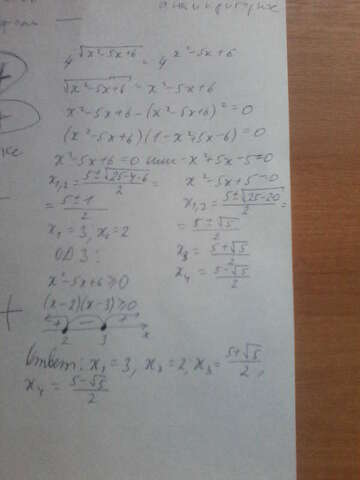 4^√(x²-5x+6) = 4^(x²-5x+6)
√(x²-5x+6) = x²-5x+6
x²-5x+6-(x²-5x+6)²=0
(x²-5x+6)(1-x²+5x-6)=0
x²-5x+6=0 или -x²+5x-5=0
x₁,₂=(5±√(25-4·6))/2= x²-5x+5=0
=(5±1)/2 x₁,₂=(5±√(25-20))/2=
x₁=3; x₂=2 =(5±√5)/2
ОДЗ: x₃=(5+√5)/2
x²-5x+6≥0 x₄=(5-√5)/2
(x-2)(x-3)≥0
+ - +
2 3 x
Ответ: x₁=3, x₂=2; x₃=(5+√5)/2,
x₄=(5-√5)/2